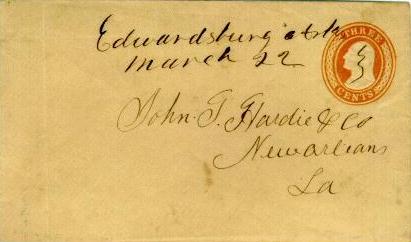 Edwardsburg Ark
March 22
THREE
CENTS
John T. Hardie & Co
New Orleans
La